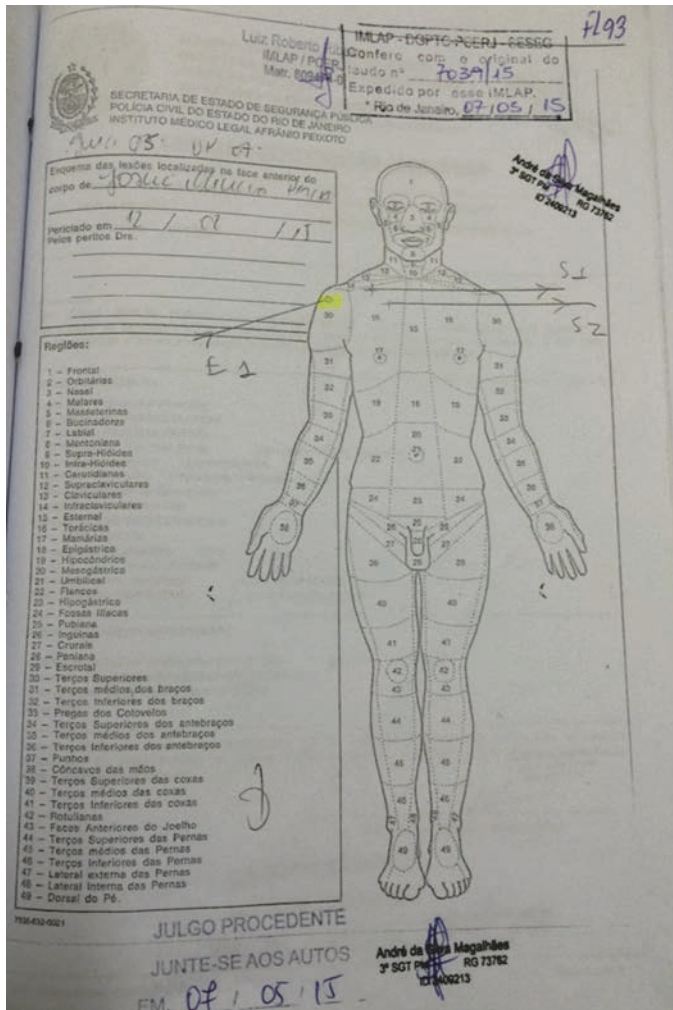 fl93
Luiz Roberto
IMLAP / PCERJ
Matr.
IMLAP - DGPTC-PCERJ - SESEG
Confere com o original do
laudo nº 7039/15
Expedido por esse IMLAP.
Rio de Janeiro, 07/05/15
SECRETARIA DE ESTADO DE SEGURANÇA PÚBLICA
POLÍCIA CIVIL DO ESTADO DO RIO DE JANEIRO
INSTITUTO MÉDICO LEGAL AFRÂNIO PEIXOTO
André da Silva Magalhães
3º SGT PM RG 73762
ID 2409213
Esquema das lesões localizadas na face anterior do
corpo de
Periciado em 12 / /
Pelos peritos Drs.
S1
S2
E1
Regiões:
1 – Frontal
2 – Orbitárias
3 – Nasal
4 – Malares
5 – Masseterinas
6 – Bucinadoras
7 – Labial
8 – Mentoniana
9 – Supra-Hióides
10 – Infra-Hióides
11 – Carotidianas
12 – Supraclaviculares
13 – Claviculares
14 – Infraclaviculares
15 – Esternal
16 – Torácicas
17 – Mamárias
18 – Epigástrica
19 – Hipocôndrios
20 – Mesogástrica
21 – Umbilical
22 – Flancos
23 – Hipogástrica
24 – Fossas Ilíacas
25 – Pubiana
26 – Inguinas
27 – Crurais
28 – Peniana
29 – Escrotal
30 – Terços Superiores
31 – Terços médios dos braços
32 – Terços Inferiores dos braços
33 – Pregas dos Cotovelos
34 – Terços Superiores dos antebraços
35 – Terços médios dos antebraços
36 – Terços Inferiores dos antebraços
37 – Punhos
38 – Côncavos das mãos
39 – Terços Superiores das coxas
40 – Terços médios das coxas
41 – Terços Inferiores das coxas
42 – Rotulianas
43 – Faces Anteriores do Joelho
44 – Terços Superiores das Pernas
45 – Terços médios das Pernas
46 – Terços Inferiores das Pernas
47 – Lateral externa das Pernas
48 – Lateral Interna das Pernas
49 – Dorsal do Pé.
JULGO PROCEDENTE
JUNTE-SE AOS AUTOS
EM 07 / 05 / 15
André da Silva Magalhães
3º SGT PM RG 73762
ID 2409213